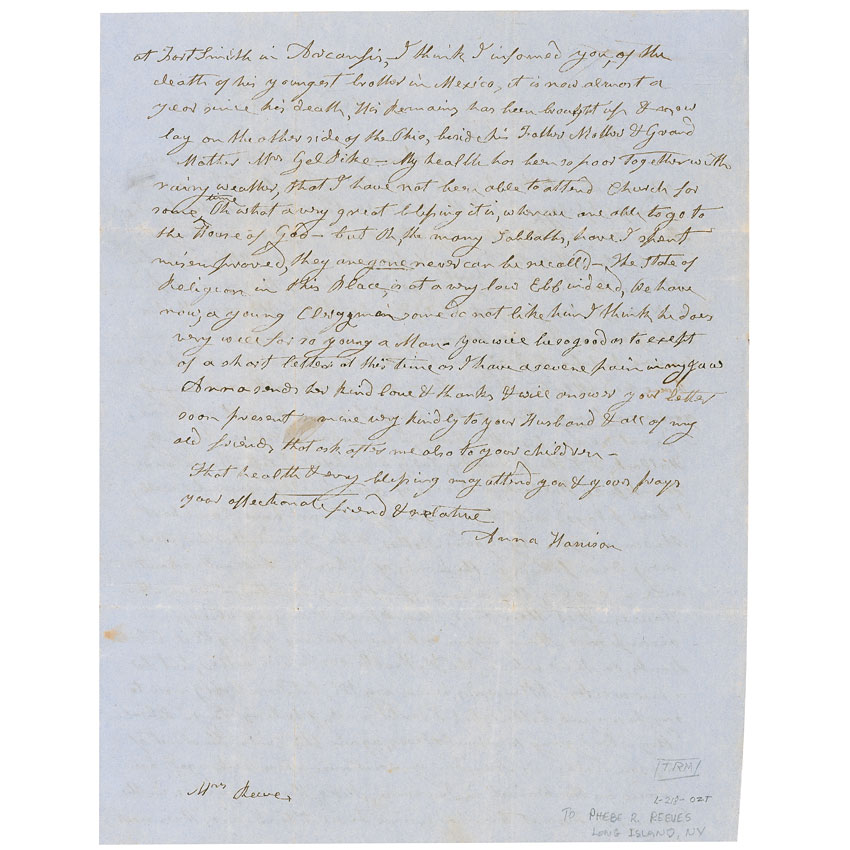 at Fort Smith in Arcansis, I think I informed you, of the
death of his youngest brother in Mexico, it is now almost a
year since his death, His Remains has been bought up & now
lay on the other side of the Ohio, beside his Father Mother & Grand
Mother Mrs Gel Pike – My health has been so poor together with
rainy weather, that I have not been able to attend Church for
some time Oh what a very great blessing it is, when we are able to go to
the House of God – but Oh, the many Sabbaths, have I spent
misimproved, they are gone never can be recall'd –, The State of
Religion in this Place, is at a very low Ebb indeed, we have
now, a young Clergyman some do not like him I think he does
very well for so young a Man – you will be so good as to exept
of a short letter at this time as I have a severe pain in my Jaw
Anna sends her kind love & thanks & will answer your letter
soon present mine very kindly to your Husband & all of my
old friends that ask after me also to your children –
That health & evry blessing may attend you & yours prays
your affectionate friend & relative
Anna Harrison
Mrs Reeve
TRM
L-218-02T
TO PHEBE R. REEVES
LONG ISLAND, NY